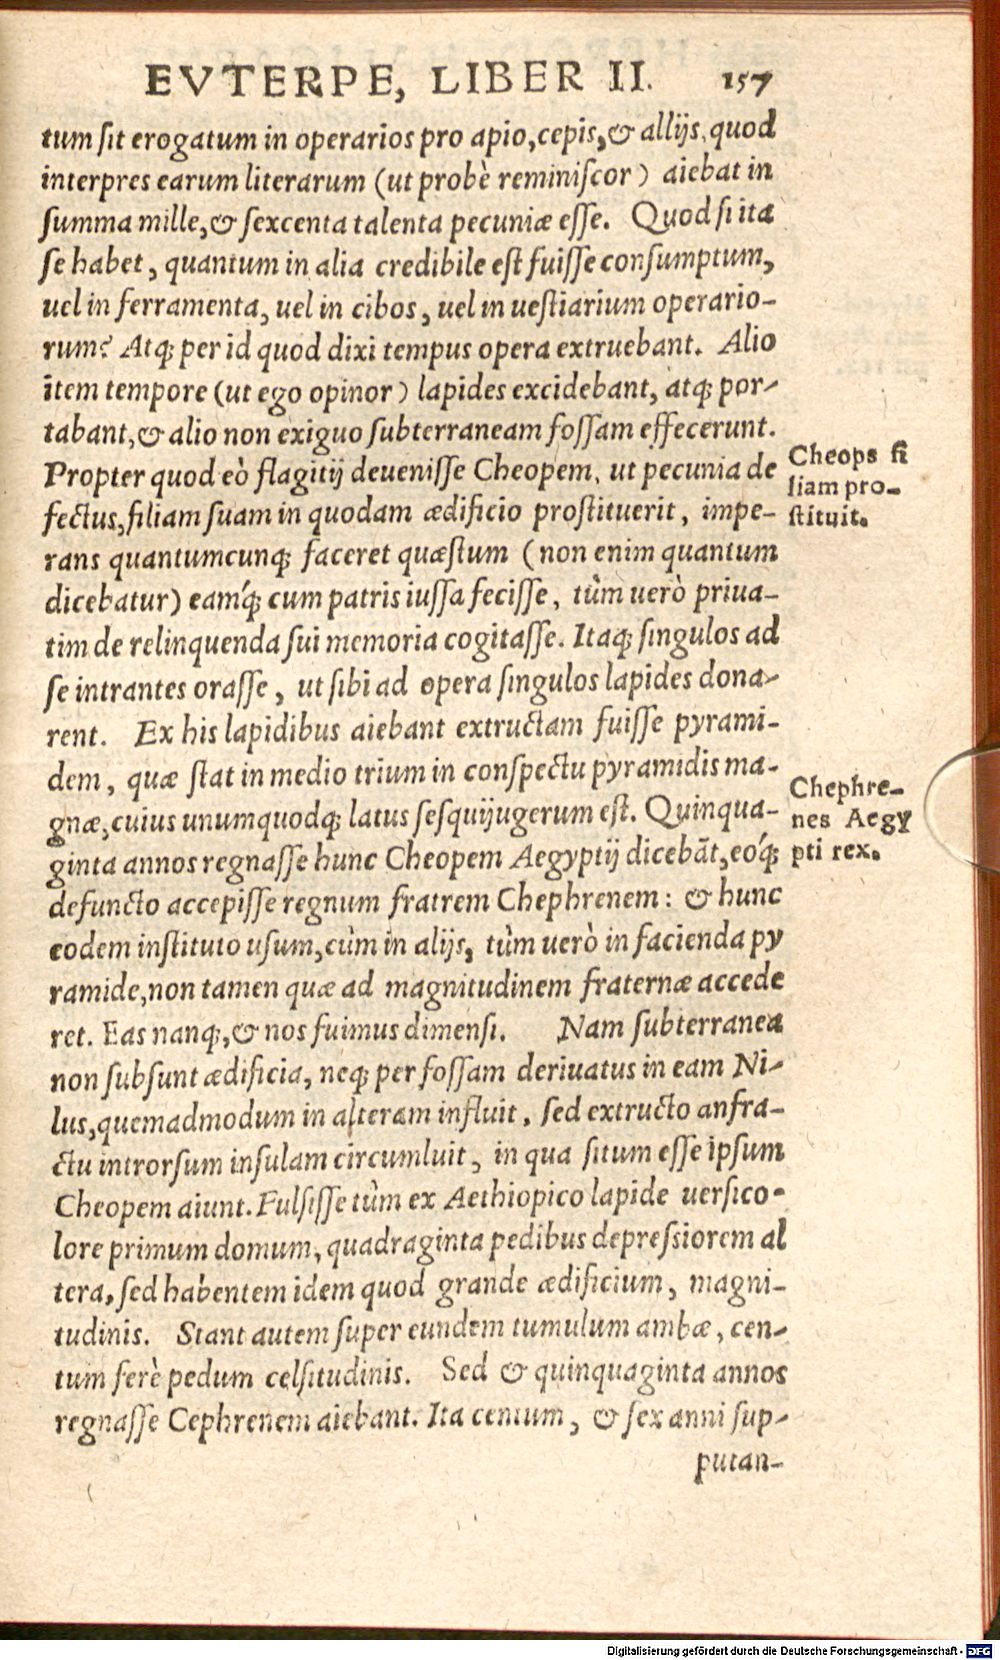 EVTERPE, LIBER II. 157
tum ſit erogatum in operarios pro apio, cepis, & allijs, quod
interpres earum literarum (ut probè reminiſcor) aiebat in
ſumma mille, & ſexcenta talenta pecuniæ eſſe. Quod ſi ita
ſe habet, quantum in alia credibile eſt fuiſſe conſumptum,
uel in ferramenta, uel in cibos, uel in ueſtiarium operario-
rum? Atq; per id quod dixi tempus opera extruebant. Alio
item tempore (ut ego opinor) lapides excidebant, atq; por-
tabant, & alio non exiguo ſubterraneam foſſam effecerunt.
Propter quod eò flagitij deueniſſe Cheopem, ut pecunia de
fectus, filiam ſuam in quodam ædificio proſtituerit, impe-
rans quantumcunq; faceret quæſtum (non enim quantum
dicebatur) eamq́; cum patris iuſſa feciſſe, tùm uerò priua-
tim de relinquenda ſui memoria cogitaſſe. Itaq; ſingulos ad
ſe intrantes oraſſe, ut ſibi ad opera ſingulos lapides dona-
rent. Ex his lapidibus aiebant extructam fuiſſe pyrami-
dem, quæ ſtat in medio trium in conſpectu pyramidis ma-
gnæ, cuius unumquodq; latus ſeſquijugerum eſt. Quinqua-
ginta annos regnaſſe hunc Cheopem Aegyptij dicebāt, eoq́;
defuncto accepiſſe regnum fratrem Chephrenem: & hunc
eodem inſtituto uſum, cùm in alijs, tùm uerò in facienda py
ramide, non tamen quæ ad magnitudinem fraternæ accede
ret. Eas nanq;, & nos fuimus dimenſi. Nam ſubterranea
non ſubſunt ædificia, neq; per foſſam deriuatus in eam Ni-
lus, quemadmodum in alteram influit, ſed extructo anfra-
ctu introrſum inſulam circumluit, in qua ſitum eſſe ipſum
Cheopem aiunt. Fulſiſſe tùm ex Aethiopico lapide uerſico-
lore primum domum, quadraginta pedibus depreſsiorem al
tera, ſed habentem idem quod grande ædificium, magni-
tudinis. Stant autem ſuper eundem tumulum ambæ, cen-
tum ferè pedum celſitudinis. Sed & quinquaginta annos
regnaſſe Cephrenem aiebant. Ita centum, & ſex anni ſup-
putan-
Cheops fi
liam pro-
ſtituit.
Chephre-
nes Aegy
pti rex.
Digitalisierung gefördert durch die Deutsche Forschungsgemeinschaft - DFG